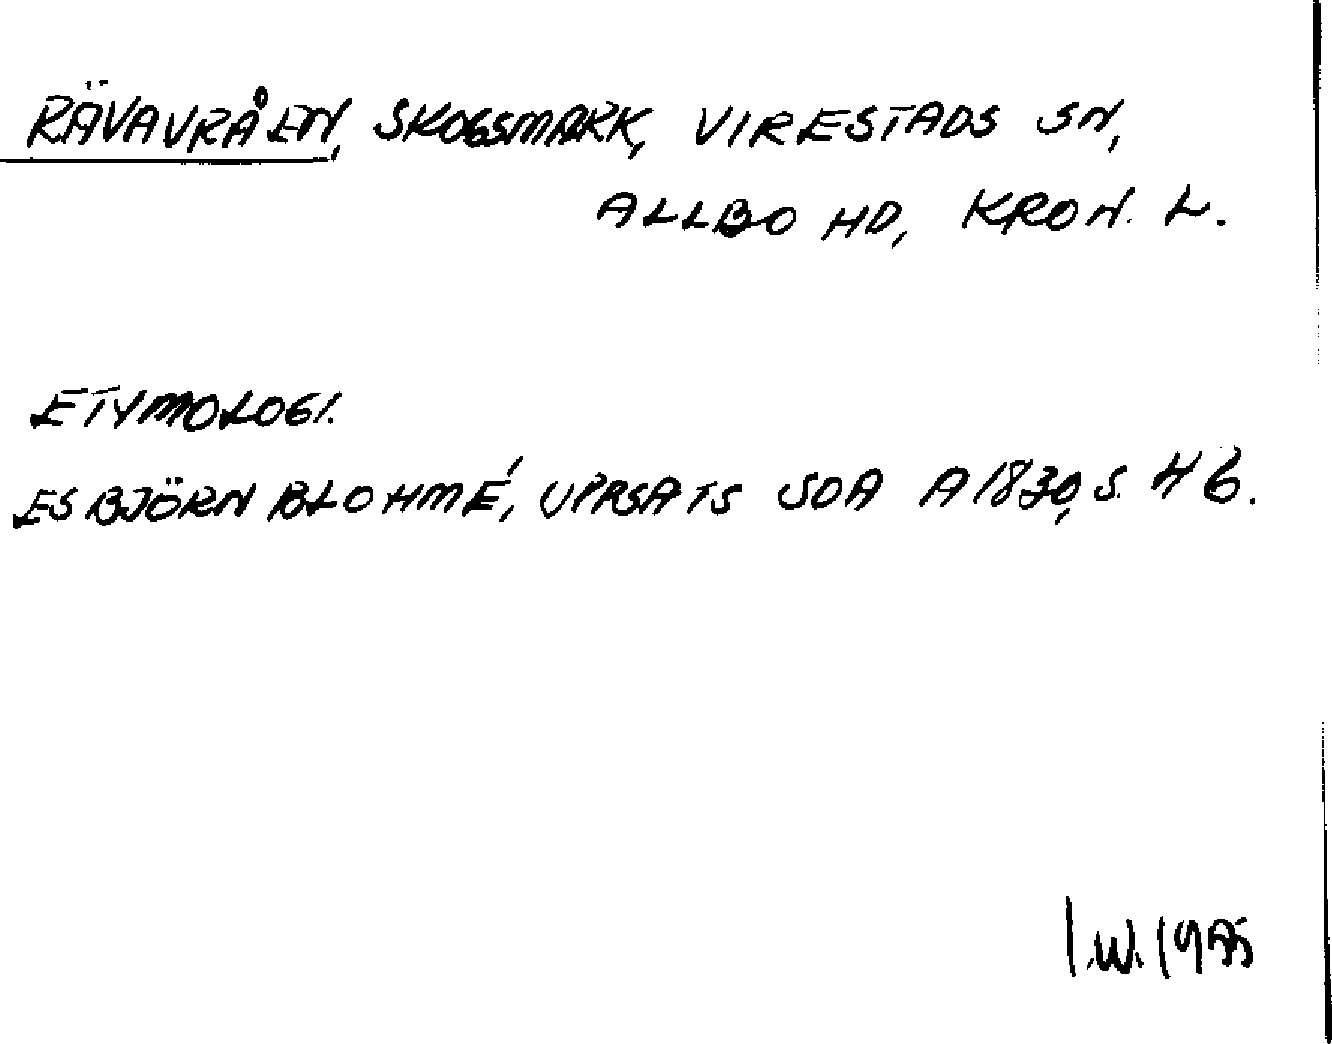 RÄVAVRÅEN, SKOGSMARK, VIRESTADS SN,
ALLBO HD, KRON. L.
ETYMOLOGI.
ESBJÖRN BLOHMÉ, UPPSATS SOA A 1830, S. 46.
I.W.